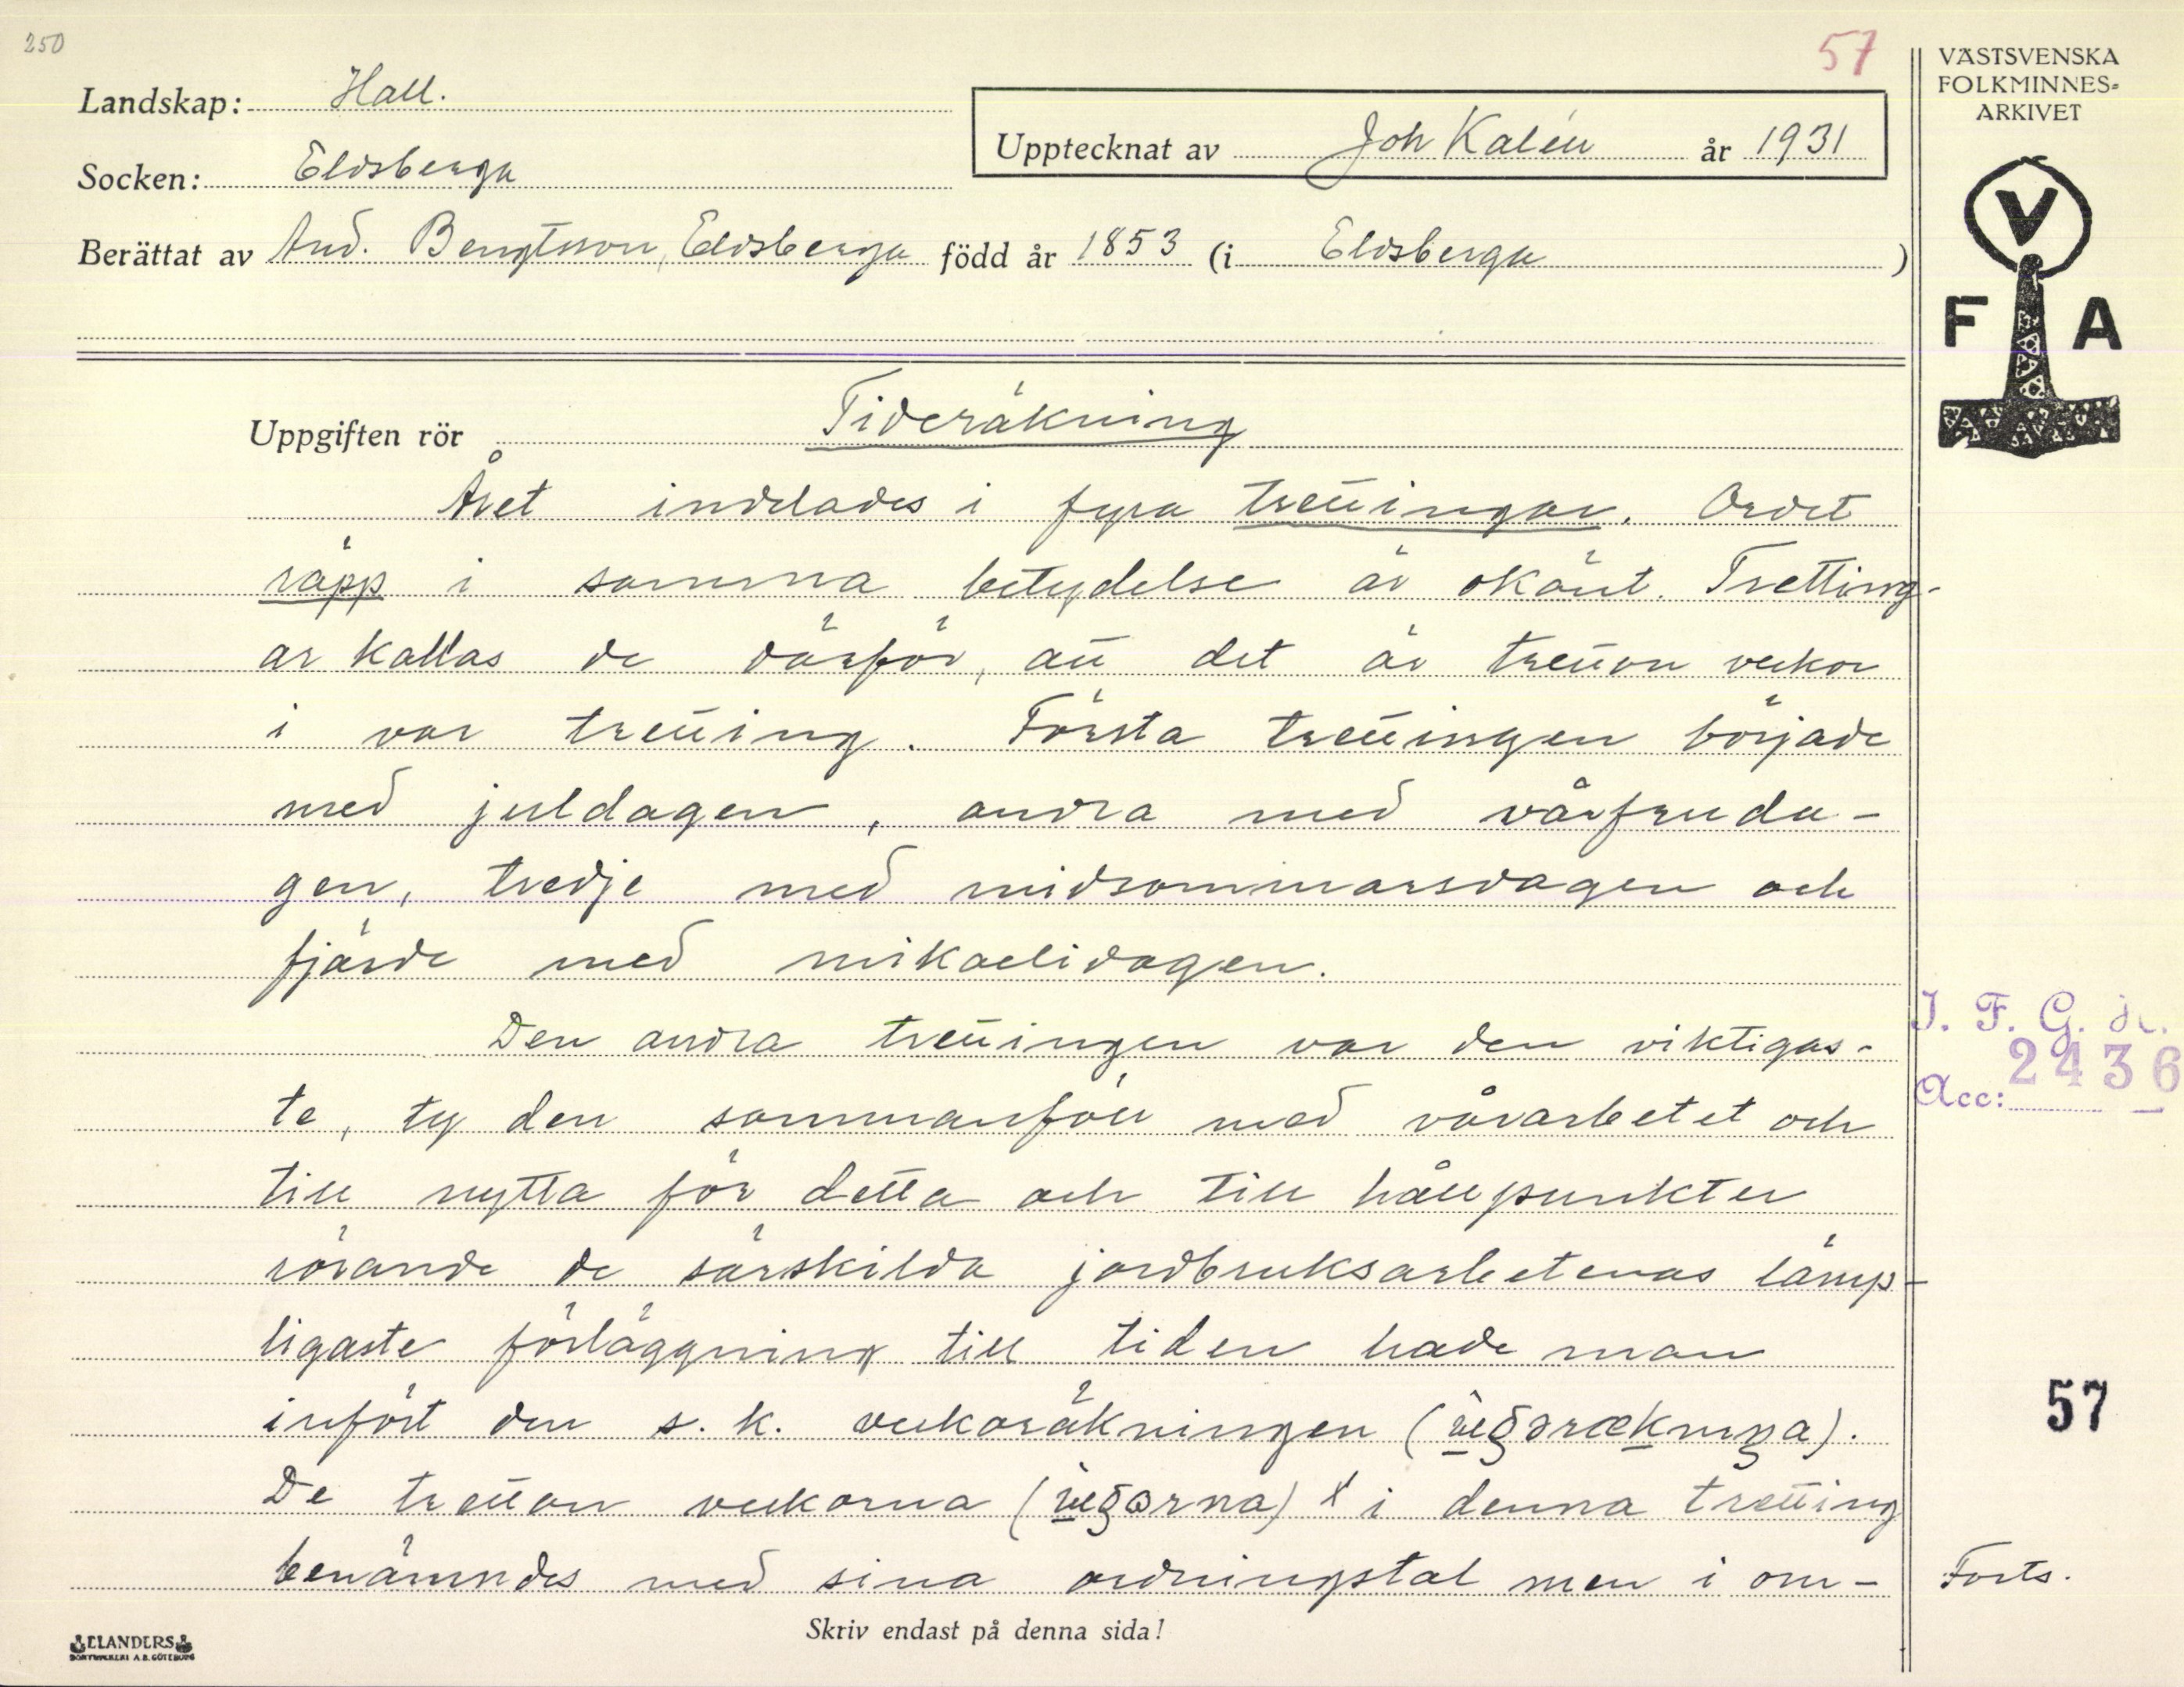 250
57
VÄSTSVENSKA
FOLKMINNES-
ARKIVET
Landskap: Hall.
Upptecknat av Joh Kalén år 1931
Socken: Eldsberga
Berättat av And. Bengtsson, Eldsberga född år 1853 (i Eldsberga )
V
F A
Uppgiften rör Tideräkning
Året indelades i fyra trettingar. Ordet
räpp i samma betydelse är okänt. Tretting-
ar kallas de därför, att det är tretton veckor
i var tretting. Första trettingen började
med juldagen, andra med vårfruda-
gen, tredje med midsommarsdagen och
fjärde med mikaelidagen.
Den andra trettingen var den viktigas-
te, ty den sammanföll med vårarbetet och
till nytta för detta och till hållpunkter
rörande de särskilda jordbruksarbetenas lämp-
ligaste förläggning till tiden hade man
infört den s. k. veckoräkningen
De tretton veckorna i denna tretting
benämndes med sina ordningstal men i om-
I. F. G. H.
Acc: 2436
57
Forts.
Skriv endast på denna sida!
ELANDERS
BOKTRYCKERI A.B. GÖTEBORG